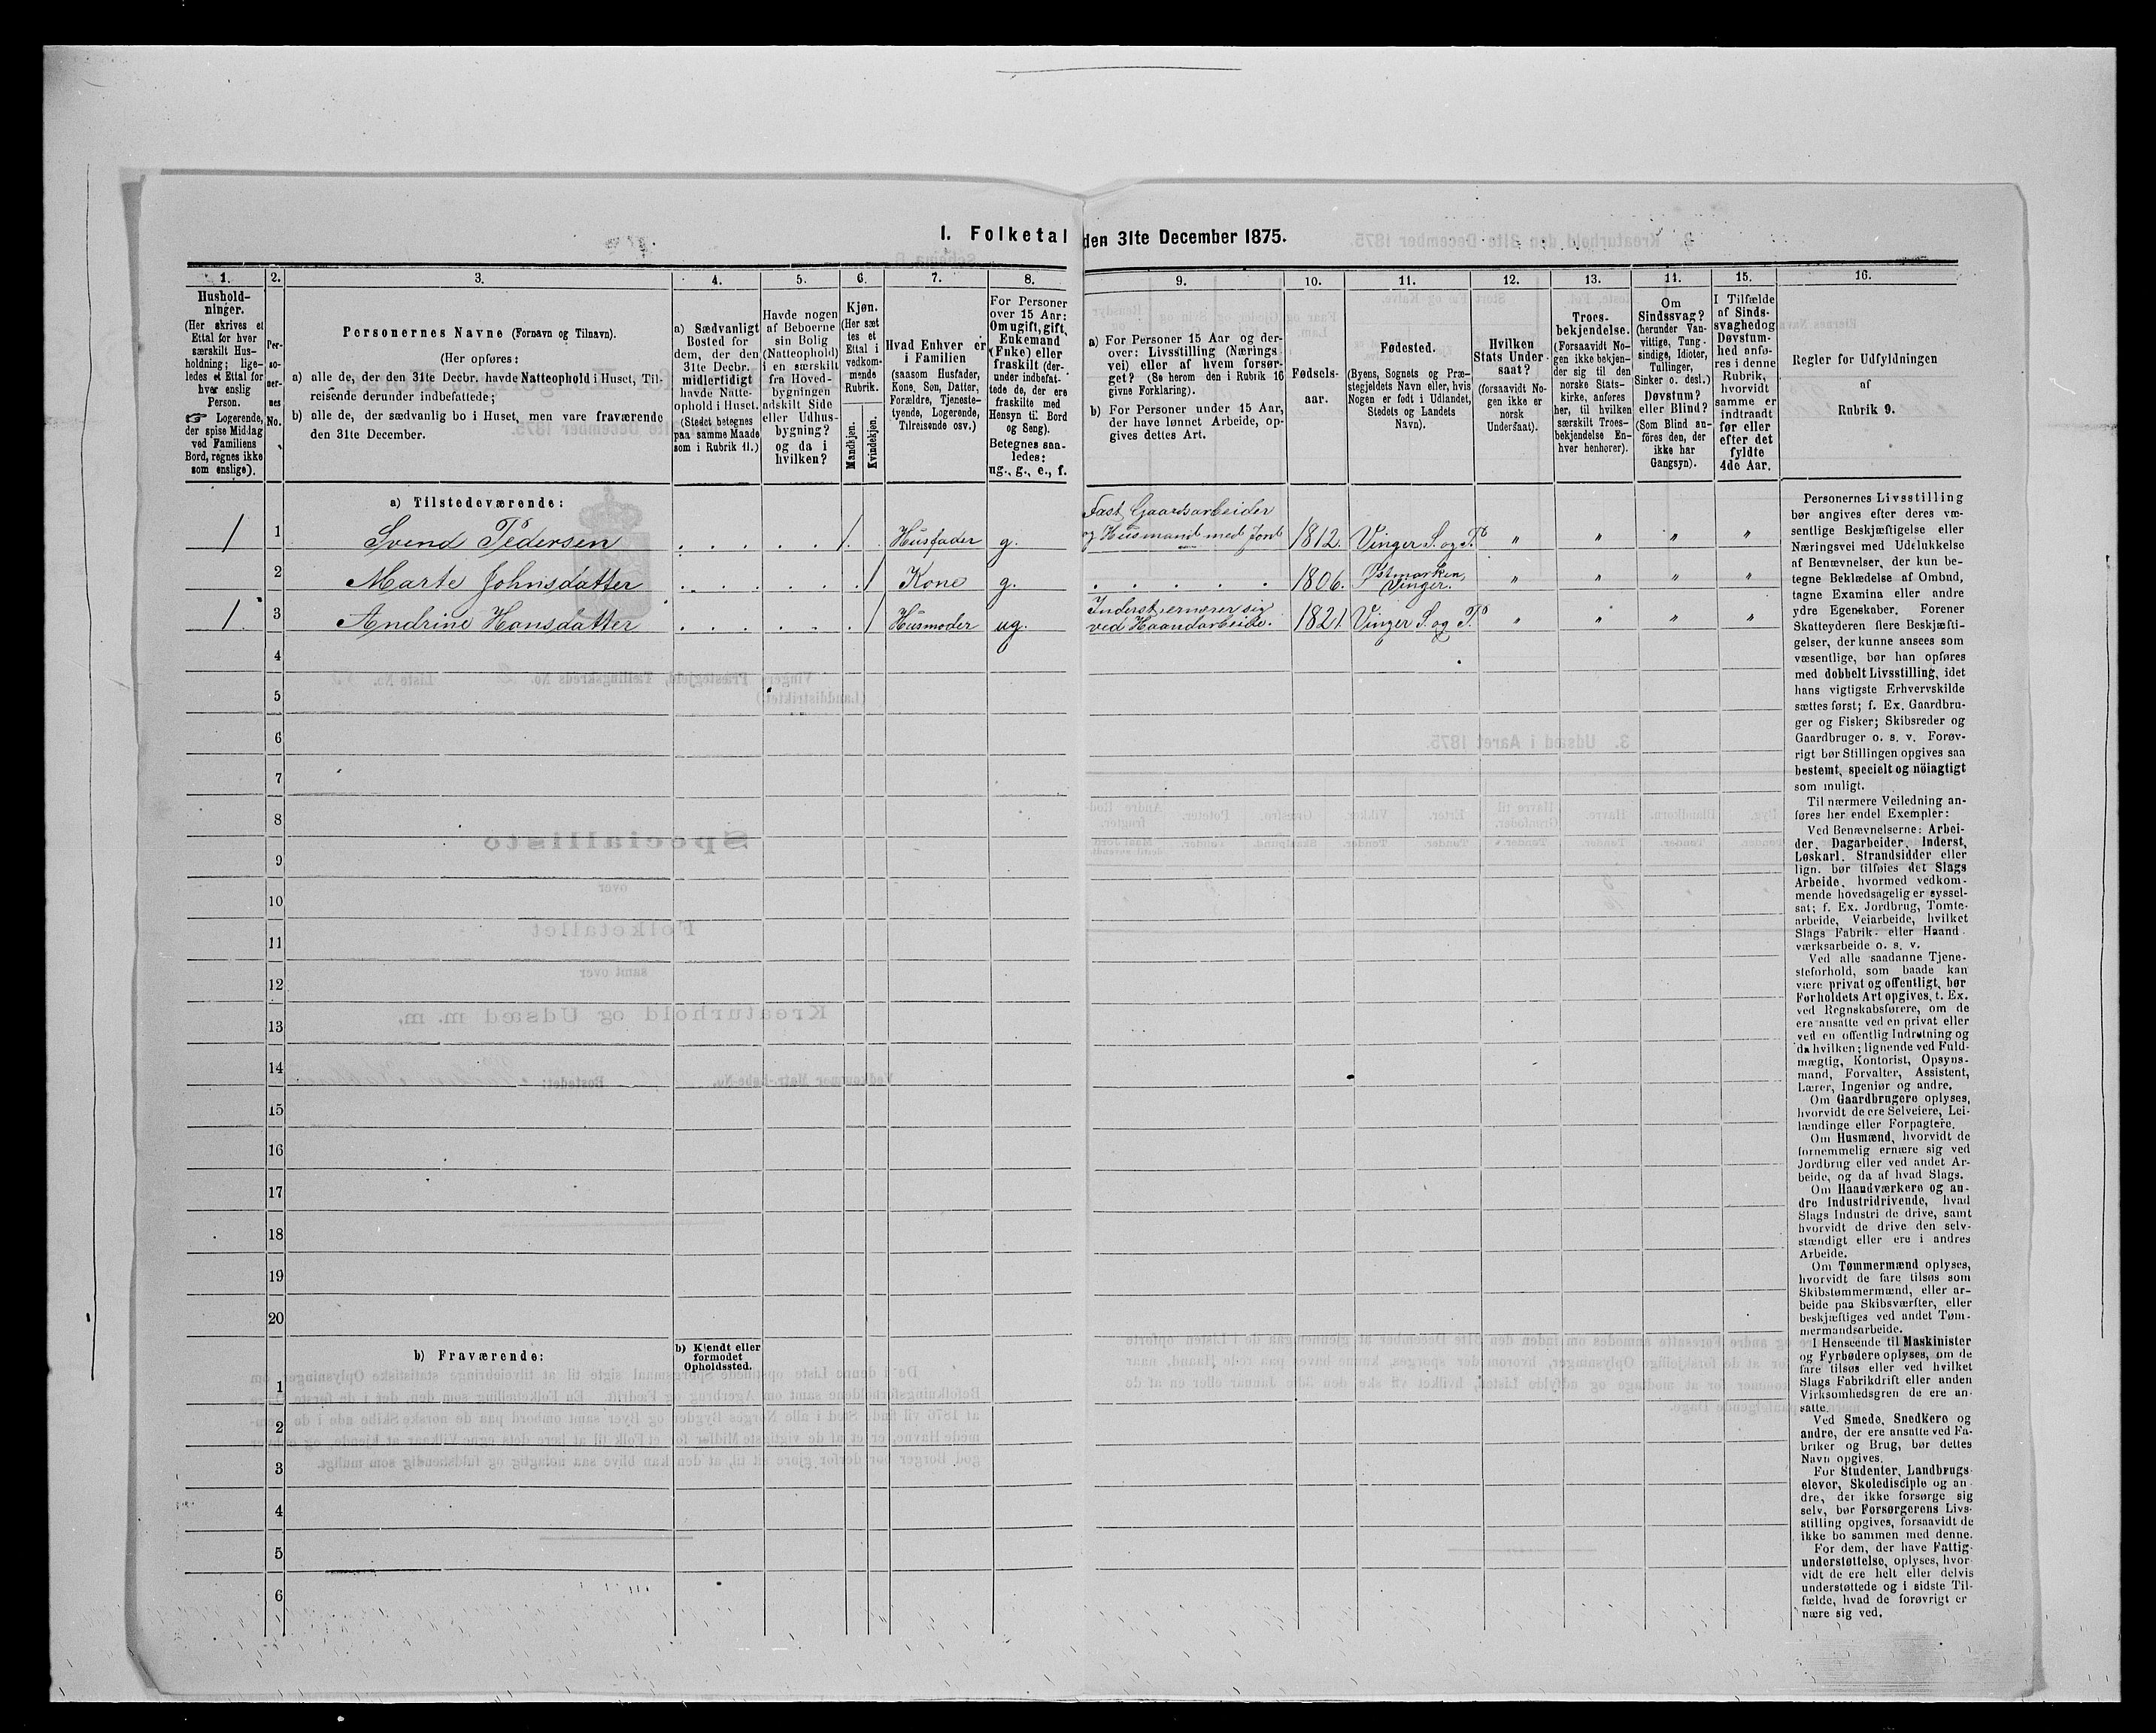 I. Folketal den 31te December 1875.
1.
2.
3.
4.
5.
6.
7.
8.
9.
10.
11.
12.
13.
14.
15.
16.
Hushold-
ninger.
(Her skrives et
Ettal for hver
særskilt Hus-
holdning; lige-
ledes et Ettal for
hver enslig
Person.
☞ Logerende,
der spise Middag
ved Familiens
Bord, regnes ikke
som enslige).
Per-
so-
ner-
nes
No.
Personernes Navne (Fornavn og Tilnavn).
(Her opføres:
a) alle de, der den 31te Decbr. havde Natteophold i Huset, Til-
reisende derunder indbefattede;
b) alle de, der sædvanlig bo i Huset, men vare fraværende
den 31te December.
a) Sædvanligt
Bosted for
dem, der den
31te Decbr.
midlertidigt
havde Natte-
ophold i Huset.
(Stedet betegnes
paa samme Maade
som i Rubrik 11.)
Havde nogen
af Beboerne
sin Bolig
(Natteophold)
i en særskilt
fra Hoved-
bygningen
adskilt Side
eller Udhus-
bygning?
og da i
hvilken?
Kjøn.
(Her sæt
tes et
Ettal i
vedkom-
mende
Rubrik.
Mandkjøn.
Kvindekjøn.
Hvad Enhver er
i Familien
(saasom Husfader,
Kone, Søn, Datter,
Forældre, Tjeneste-
tyende, Logerende,
Tilreisende osv.)
For Personer
over 15 Aar:
Om ugift, gift,
Enkemand
(Enke) eller
fraskilt (der-
under indbefat-
tede de, der ere
fraskilte med
Hensyn til Bord
og Seng).
Betegnes saa-
ledes:
ug., g., e., f.
a) For Personer 15 Aar og der-
over: Livsstilling (Nærings
vei) eller af hvem forsør-
get? (Se herom den i Rubrik 16
givne Forklaring).
b) For Personer under 15 Aar,
der have lønnet Arbeide, op-
gives dettes Art.
Fødsels-
aar.
Fødested.
(Byens, Sognets og Præ-
stegjeldets Navn eller, hvis
Nogen er født i Udlandet,
Stedets og Landets
Navn).
Hvilken
Stats Under-
saat?
(forsaavidt No-
gen ikke er
norsk
Undersaat).
Troes-
bekjendelse.
(Forsaavidt No-
gen ikke bekjen-
der sig til den
norske Stats-
kirke, anføres
her, til hvilken
særskilt Troes-
bekjendelse En-
hver henhører).
Om
Sindssvag?
(herunder Van-
vittige, Tung-
sindige, Idioter,
Tullinger,
Sinker o. desl.)
Døvstum?
eller Blind?
(Som Blind an-
föres den, der
ikke har
Gangsyn).
I Tilfælde
af Sinds-
svaghed og
Døvstum-
hed anfø-
res i denne
Rubrik,
hvorvidt
samme er
indtraadt
før eller
efter det
fyldte
4de Aar.
Regler for Udfyldningen
af
Rubrik 9.
a) Tilstedeværende:
1 1 Svend Pedersen 1. Husfader g. Fast Gaardsarbeider
og Husmand med Jord 1812. Vinger S. og P. " " " "
2 Marte Johnsdatter 1 Kone g. 1806. Østmarken,
Vinger. " " " "
1. 3 Andrine Hansdatter 1 Husmoder ug. Inderst ernærer sig
ved Haandarbeide. 1821. Vinger S. og P. " " " "
4
5
6
7
8
9
10
11
12
13
14
15
16
17
18
19
20
b) Fraværende:
b) Kjendt eller
formodet
Opholdssted.
1
2
3
4
5
6
Personernes Livsstilling
bør angives efter deres væ-
sentlige Beskjæftigelse eller
Næringsvei med Udelukkelse
af Benævnelser, der kun be-
tegne Beklædelse af Ombud,
tagne Examina eller andre
ydre Egenskaber. Forener
Skatteyderen flere Beskjæfti-
gelser, der kunne ansees som
væsentlige, bør han opføres
med dobbelt Livsstilling, idet
hans vigtigste Erhvervskilde
sættes først; f. Ex. Gaardbru-
ger og Fisker; Skibsreder og
Gaardbruger o. s. v. Forøv-
rigt bør Stillingen opgives saa
bestemt, specielt og nöiagtigt
som muligt.
Til nærmere Veiledning an-
føres her endel Exempler:
Ved Benævnelserne: Arbei-
der, Dagarbeider, Inderst,
Løskarl, Strandsidder eller
lign. bør tilføies det Slags
Arbeide, hvormed vedkom-
mende hovedsagelig er syssel-
sat; f. Ex. Jordbrug, Tomte-
arbeide, Veiarbeide, hvilket
Slags Fabrik- eller Haand
værksarbeide o. s. v.
Ved alle saadanne Tjene-
steforhold, som baade kan
være privat og offentligt, bør
Forholdets Art opgives, t. Ex.
ved Regnskabsførere, om de
ere ansatte ved en privat eller
ved en offentlig Indretning og
da hvilken; lignende ved Fuld-
mægtig, Kontorist, Opsyns-
mand, Forvalter, Assistent,
Lærer, Ingeniør og andre.
Om Gaardbrugere oplyses,
hvorvidt de ere Selveiere, Lei-
lændinge eller Forpagtere.
Om Husmænd, hvorvidt de
fornemmelig ernære sig ved
Jordbrug eller ved andet Ar-
beide, og da af hvad Slags.
Om Haandværkere og an-
dre Industridrivende, hvad
Slags Industri de drive, samt
hvorvidt de drive den selv-
stændigt eller ere i andres
Arbeide.
Om Tømmermænd oplyses,
hvorvidt de fare tilsøs som
Skibstømmermænd, eller ar-
beide paa Skibsværfter, eller
beskjæftiges ved andet Tøm-
mermandsarbeide.
I Henseende til Maskinister
og Fyrbødere oplyses, om de
fare tilsøs eller ved hvilket
Slags Fabrikdrift eller anden
Virksomhedsgren de ere an-
satte.
Ved Smede, Snedkere og
andre, der ere ansatte ved Fa-
briker og Brug, bør dettes
Navn opgives.
For Studenter, Landbrugs-
elever, Skoledisciple og an-
dre, der ikke forsørge sig
selv, bør Forsørgerens Livs-
stilling opgives, forsaavidt de
ikke bo sammen med denne.
For dem, der have Fattig-
understøttelse, oplyses, hvor-
vidt de ere helt eller delvis
understøttede og i sidste Til-
fælde, hvad de forøvrigt er
nære sig ved.